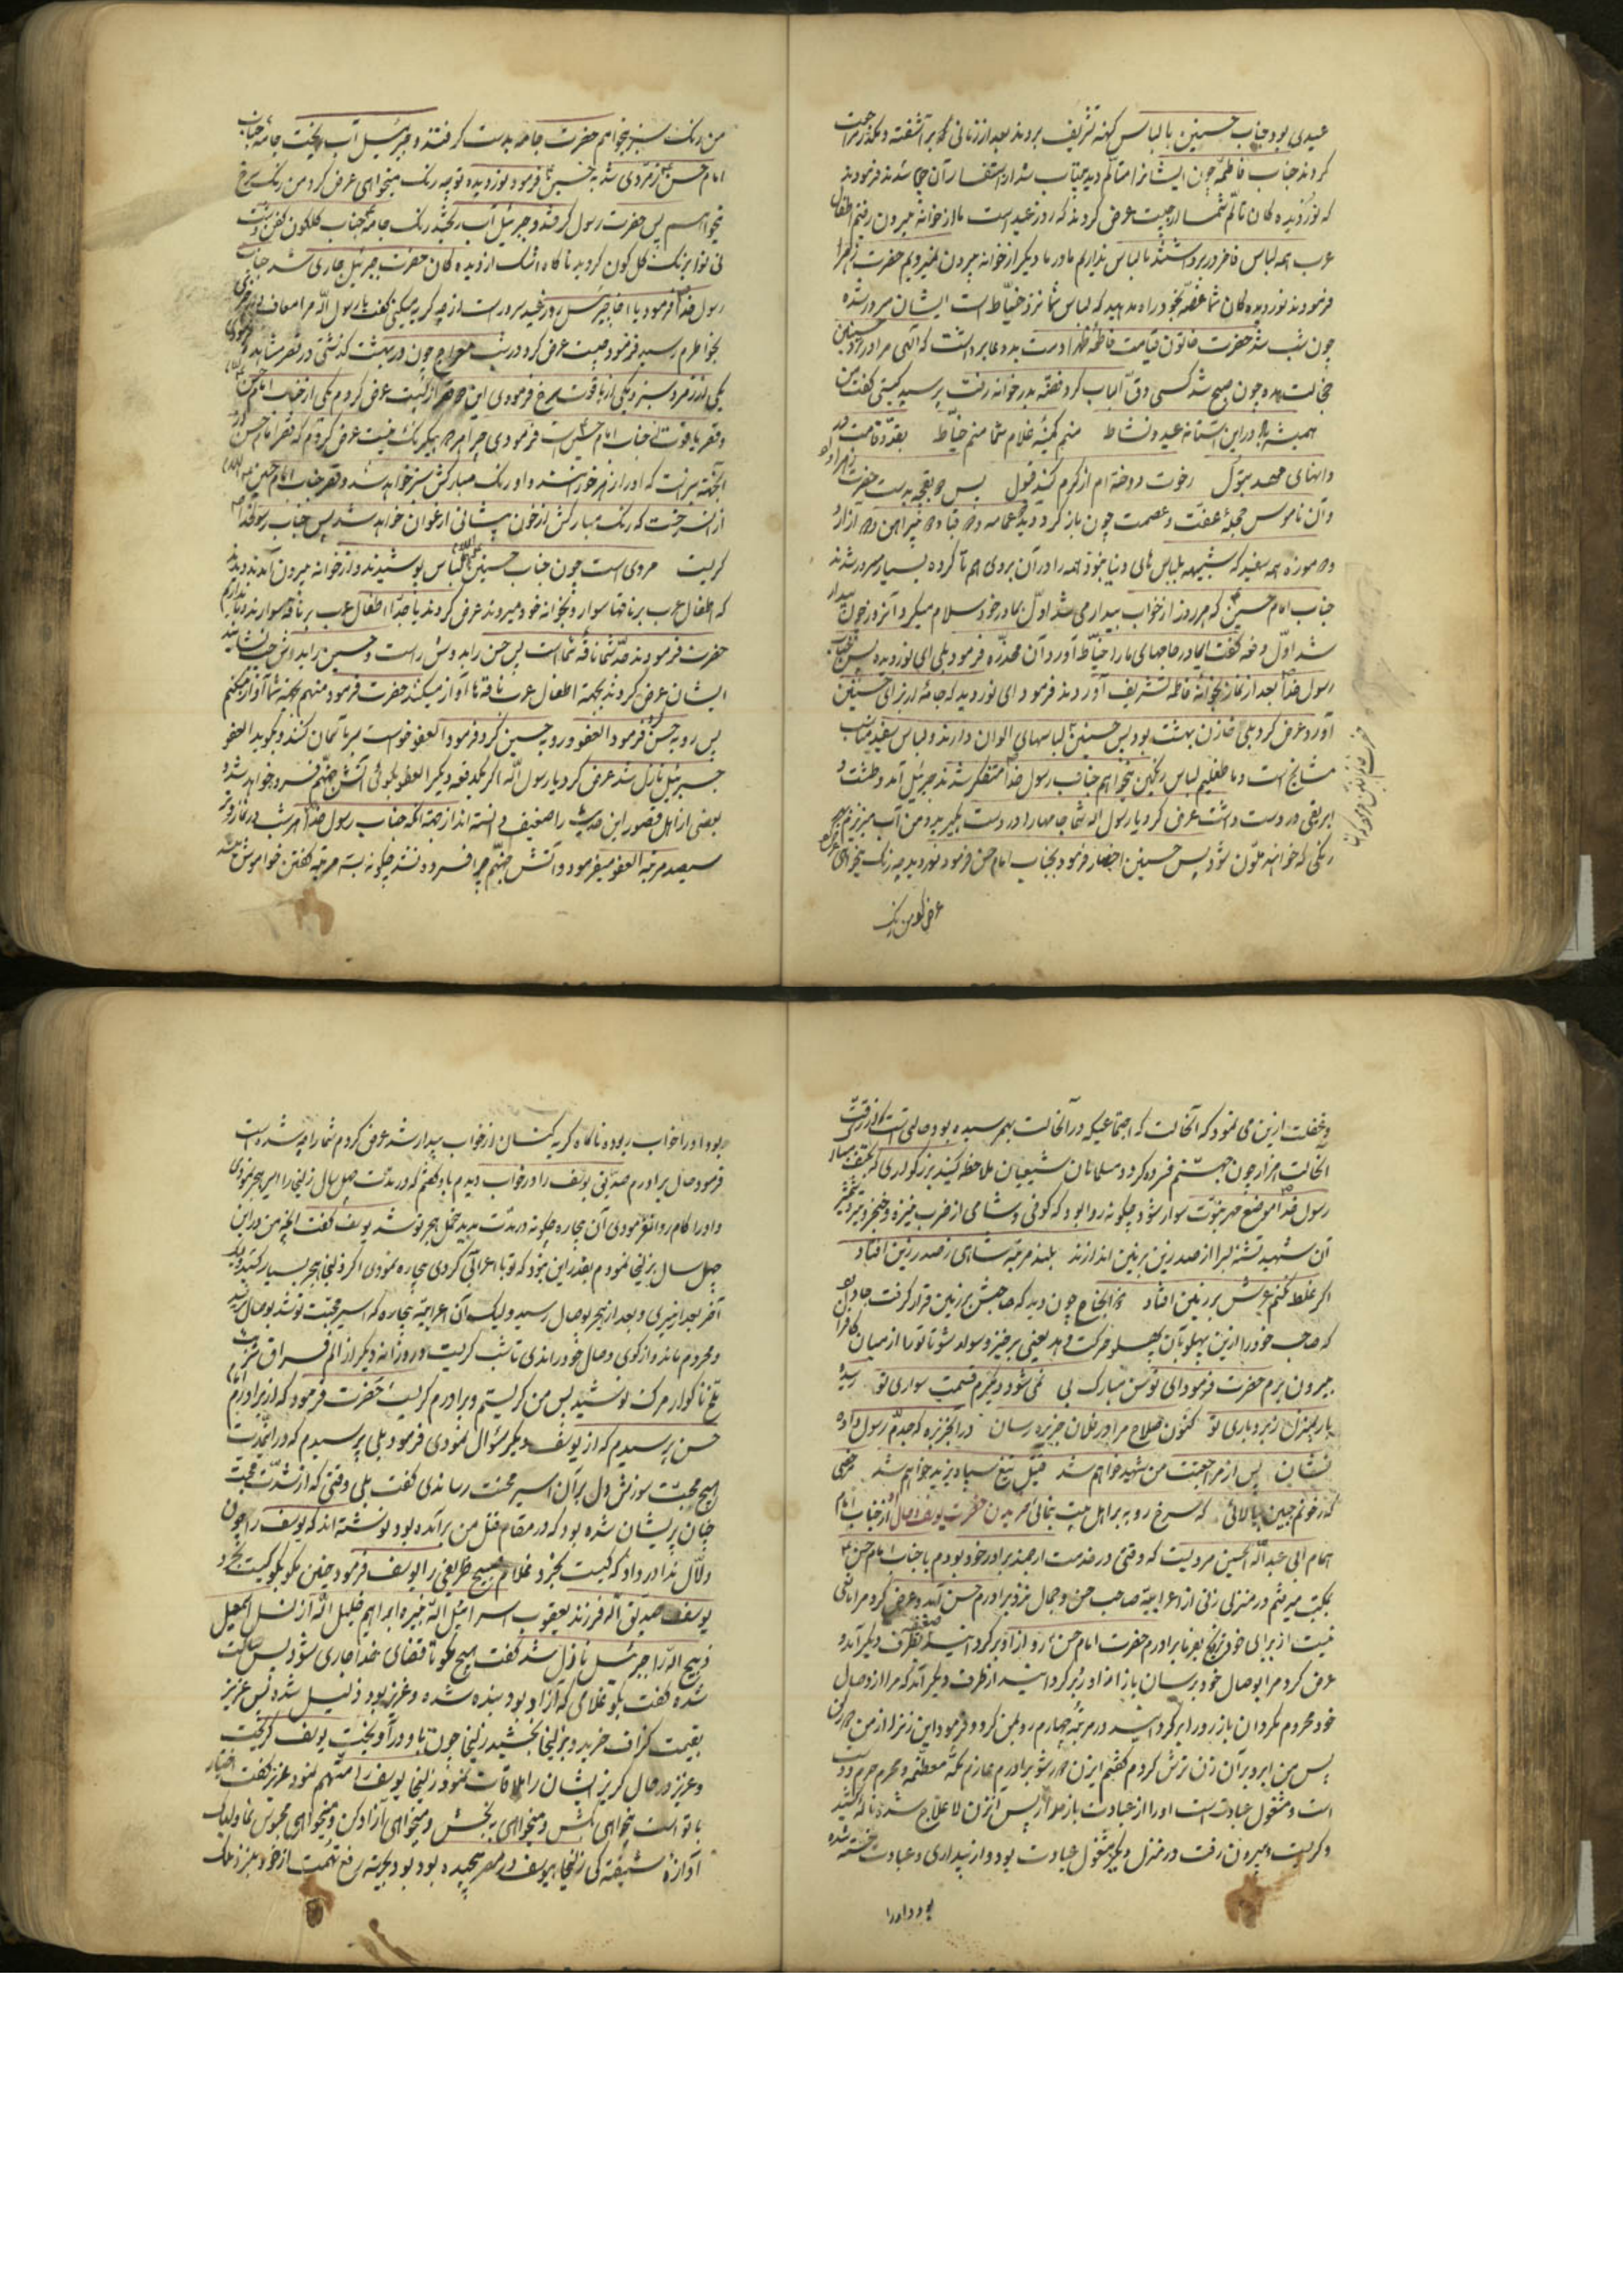 عیدی بود جناب حسنین با لباس کهنه تشریف بردند بعد از زمانی برآشفته و مکدر مراجعت
کردند جناب فاطمه چون ایشانرا متألم دید بیتاب شد از استفسار آن جویا شدند فرمودند
که نور دیده کان تألم شما از چیست عرض کردند که روز عید است ما از خانه بیرون رفتیم اطفال
عرب همه لباس فاخر در بر داشتند ما لباس نداریم مادر ما دیگر از خانه بیرون نمیرویم حضرت زهرا
فرمودند نور دیده کان شما غصه بخود راه مدهید که لباس شما نزد خیاط است ایشان مسرور شده
چون شب شد حضرت خاتون قیامت فاطمه زهرا دست بدعا برداشت که الهی مرا در نزد حسنین
خجالت مده چون صبح شد کسی دق الباب کرد فضه بدر خانه رفت پرسید کیستی گفت من
همیشه باد در این آستانه عید و نشاط منم کمینه غلام شما منم خیاط بقد و قامت
رخوت دوخته ام از کرم کنید قبول پس بقچه بدست حضرت زهرا داد
و آن ناموس حجله عفت و عصمت چون باز کرد دید عمامه و دو قبا و دو پیراهن و دو ازار
و دو موزه همه سفید که شبیه بلباس های دنیا نبود همه را در آن بروی هم تا کرده بسیار مسرور شدند
جناب امام حسین که هر روز از خواب بیدار می شد اول بمادر خود سلام میکرد آنروز چون بیدار
شد اول دفعه گفت ایمادر جامهای ما را خیاط آورد آن مخدره فرمود بلی ای نور دیده پس جناب
رسول خدا بعد از نماز بخانه فاطمه تشریف آوردند فرمود ای نور دیده که جامه از برای حسنین
آورد عرض کرد بلی خازن بهشت بود پس حسنین لباسهای الوان دارند و لباس سفید مناسب
مشایخ است و ما طفلیم لباس رنگین میخواهیم جناب رسول خدا متفکر شدند جبرئیل آمد و طشت و
ابریقی در دست داشت عرض کرد یا رسول الله شما جامها را در دست بگیرید و من آب میریزم بهر
رنگی که خواهند ملون شود پس حسنین احضار فرمود بجناب امام حسن فرمود نور دیده چه رنگ میخواهی
عرض کرد من رنگ
من رنگ سبز میخواهم حضرت جامه بدست گرفتند و جبرئیل آب ریخت جامه جناب
امام حسن زمردی شد به حسین فرمود نور دیده تو چه رنگ میخواهی عرض کرد من رنگ سرخ
میخواهم پس حضرت رسول گرفتند و جبرئیل آب ریخته رنگ جامه جناب گلگون کفن دشت
نی نوا برنگ گل گون گردید ناگاه اشک از دیده گان حضرت جبرئیل جاری شد جناب
رسول خدا فرمود یا اخا جبرئیل روز عید سرور است از چه گریه میکنی گفت یا رسول الله مرا معاف
بخواطرم رسید فرمود چیست عرض کرد در شب معراج چون در بهشت گذشتی دو قصر مشاهده فرمودی
یکی از زمرد سبز و یکی از یاقوت سرخ فرمودی این دو قصر از کیست عرض کردم یکی از جناب امام حسن
و قصر یاقوت از جناب امام حسین است فرمودی چرا هر دو بیک رنگ نیست عرض کردم که قصر امام حسن از آن
جهته سبز است که او را زهر خورانند و او رنگ مبارکش سبز خواهد شد و قصر جناب امام حسین
از آن سرخست که رنگ مبارکش از خون پیشانی ارغوان خواهد شد پس جناب رسول خدا
گریست مروی است چون جناب حسنین لباس پوشیدند و از خانه بیرون آمدند دیدند
که اطفال عرب بر ناقها سوار و بخانه خود میروند عرض کردند یا جدا اطفال عرب بر ناقه سوارند ما نداریم
حضرت فرمودند جد شما ناقه شما است پس حسن را بدوش راست و حسین را بدوش چپ نشانیدند
ایشان عرض کردند بجهة اطفال عرب ناقه ها آواز میکند حضرت فرمود منهم بجهة شما آواز میکنم
پس رو به حسن فرمود العفو و رو به حسین کرد فرمود العفو خواست مرتبا تمام کند و بگوید العفو
جبرئیل نازل شد عرض کرد یا رسول الله اگر یکدفعه دیگر العفو بگوئی آتش جهنم فسرده خواهد شد و
بعضی از اهل قصور این حدیث را ضعیف دانسته اند از جهته آنکه جناب رسول خدا هر شب در نماز وتر
سیصد مرتبه العفو میفرمود و آتش جهنم چرا فسرده نشد چگونه بسه مرتبه گفتن خواموش
و غفلت ازین می نمود که آنحالت که اجتماعیکه در آنحالت بهم رسیده بود حالتی است که از رقت
انحالت هزار چون جهنم فسرده گردد مسلمانان شیعیان ملاحظه کنید بزرگواری که کتف مبارک
رسول خدا موضع مهر نبوت سوار شود چگونه روا بود که کوفی و شامی از ضرب نیزه و خنجر و تیر و شمشیر
آن شهید تشنه لبرا از صدر زین بزمین اندازند بلند مرتبه شاهی ز صدر زین افتاد
اگر غلط نکنم عرش بر زمین افتاد ذوالجناح چون دید که صاحبش بر زمین قرار گرفت
که صاحب خود را ازین پهلو بآن پهلو حرکت دهد یعنی برخیز و سوار شو تا تو را از میان کافران
بیرون برم حضرت فرمود ای توسن مبارک پی نمی شود دیگرم قسمت سواری تو رسیده
بار بمنزل ز بردباری تو کنون صلاح مرا در جزیره رسان در آنجزیره که جدم رسول داده
نشان پس از مراجعت من شهید خواهم شد قتیل تیغ سپاه یزید خواهم شد
که ز خونم جبین بیالائی که سرخ رو به بر اهل بیت بنمائی حضرت یوسف از جناب امام
همام ابی عبد الله الحسین مرویست که وقتی در خدمت ارجمند برادر خود بودم با جناب امام حسن
بمکه میرفتم در منزلی زنی از اعرابیه صاحب حسن و جمال نزد برادرم حسن آمد و عرض کرد مرا
نیست از برای خود نکاح بفرما برادرم حضرت امام حسن رو از او برگردانید از طرف دیگر آمد و
عرض کرد مرا بوصال خود برسان باز از او رو برگردانید از طرف دیگر آمد که مرا از وصال
خود محروم مگردان باز رو را برگردانید در مرتبه چهارم رو بمن کرد و فرمود این زنرا از من دور کن
پس من ابرو بر آن زن ترش کردم گفتم ایزن دور شو برادرم عازم مکه معظمه و محرم حرم دوست
است و مشغول عبادت است او را از عبادت باز مدار پس آنزن لا علاج شد و ناله کشید
و گریست بیرون رفت در منزل دیگر مشغول عبادت بود و از بیداری و عبادت خسته شده
بود و او را
بود او را خواب ربوده ناگاه گریه کنان از خواب بیدار شد عرض کردم شما را چه شده است
فرمود حال برادرم صدیق یوسف را در خواب دیدم باو گفتم که در مدت چهل سال زلیخا را اسیر هجر نمودی
و او را کام روا نفرمودی آن بیچاره چگونه در مدت مدید متحمل هجر تو شد یوسف گفت آنچه من در این
چهل سال بزلیخا نمودم بقدر این نبود که تو با اعرابی کردی بیچاره نمودی اگر زلیخا هجر بسیار کشید
آخر بعد از پیری و بعد از هجر بوصال رسید ولیک آن اعرابیه بیچاره که اسیر محبت تو شد بوصال نرسید
و محروم ماند و از کوی وصال خود راندی تا شب گریست و روزانه دیگر از الم فراق شربت
تلخ ناگوار مرگ نوشید پس من گریستم و برادرم گریست حضرت فرمود که از برادرم امام
حسن پرسیدم که از یوسف دیگر سؤال نمودی فرمود بلی پرسیدم که در آنمدت
هیچ محبت سوزش دل بر آن اسیر محنت رساندی گفت بلی وقتی که از شدت محبت
چنان پریشان شده بود که در مقام قتل من برآمده بود نوشته اند که یوسف را چون
دلال ندا در داد که کیست بخرد غلام صبیح ظریفی را یوسف فرمود چنین مگو بگو کیست بخرد
یوسف صدیق الله فرزند یعقوب اسرائیل الله نبیره ابراهیم خلیل الله از نسل اسمعیل
ذبیح الله را جبرئیل نازل شد گفت هیچ مگو تا قضای خدا جاری شود پس ساکت
شده گفت بگو غلامی که آزاد بود بنده شده و عزیز بود ذلیل شده پس عزیز
بقیمت گزاف خرید و بزلیخا بخشید زلیخا چون باو درآویخت یوسف گریخت
و عزیز در حال گریز ایشان را ملاقات نمود زلیخا یوسف را متهم نمود عزیز گفت اختیار
با تو است میخواهی بکش و میخواهی ببخش و میخواهی آزاد کن و میخواهی محبوس نما ولیک
آوازه شیفته گی زلیخا بیوسف در مصر پیچیده بود بجهته رفع تهمت از خود